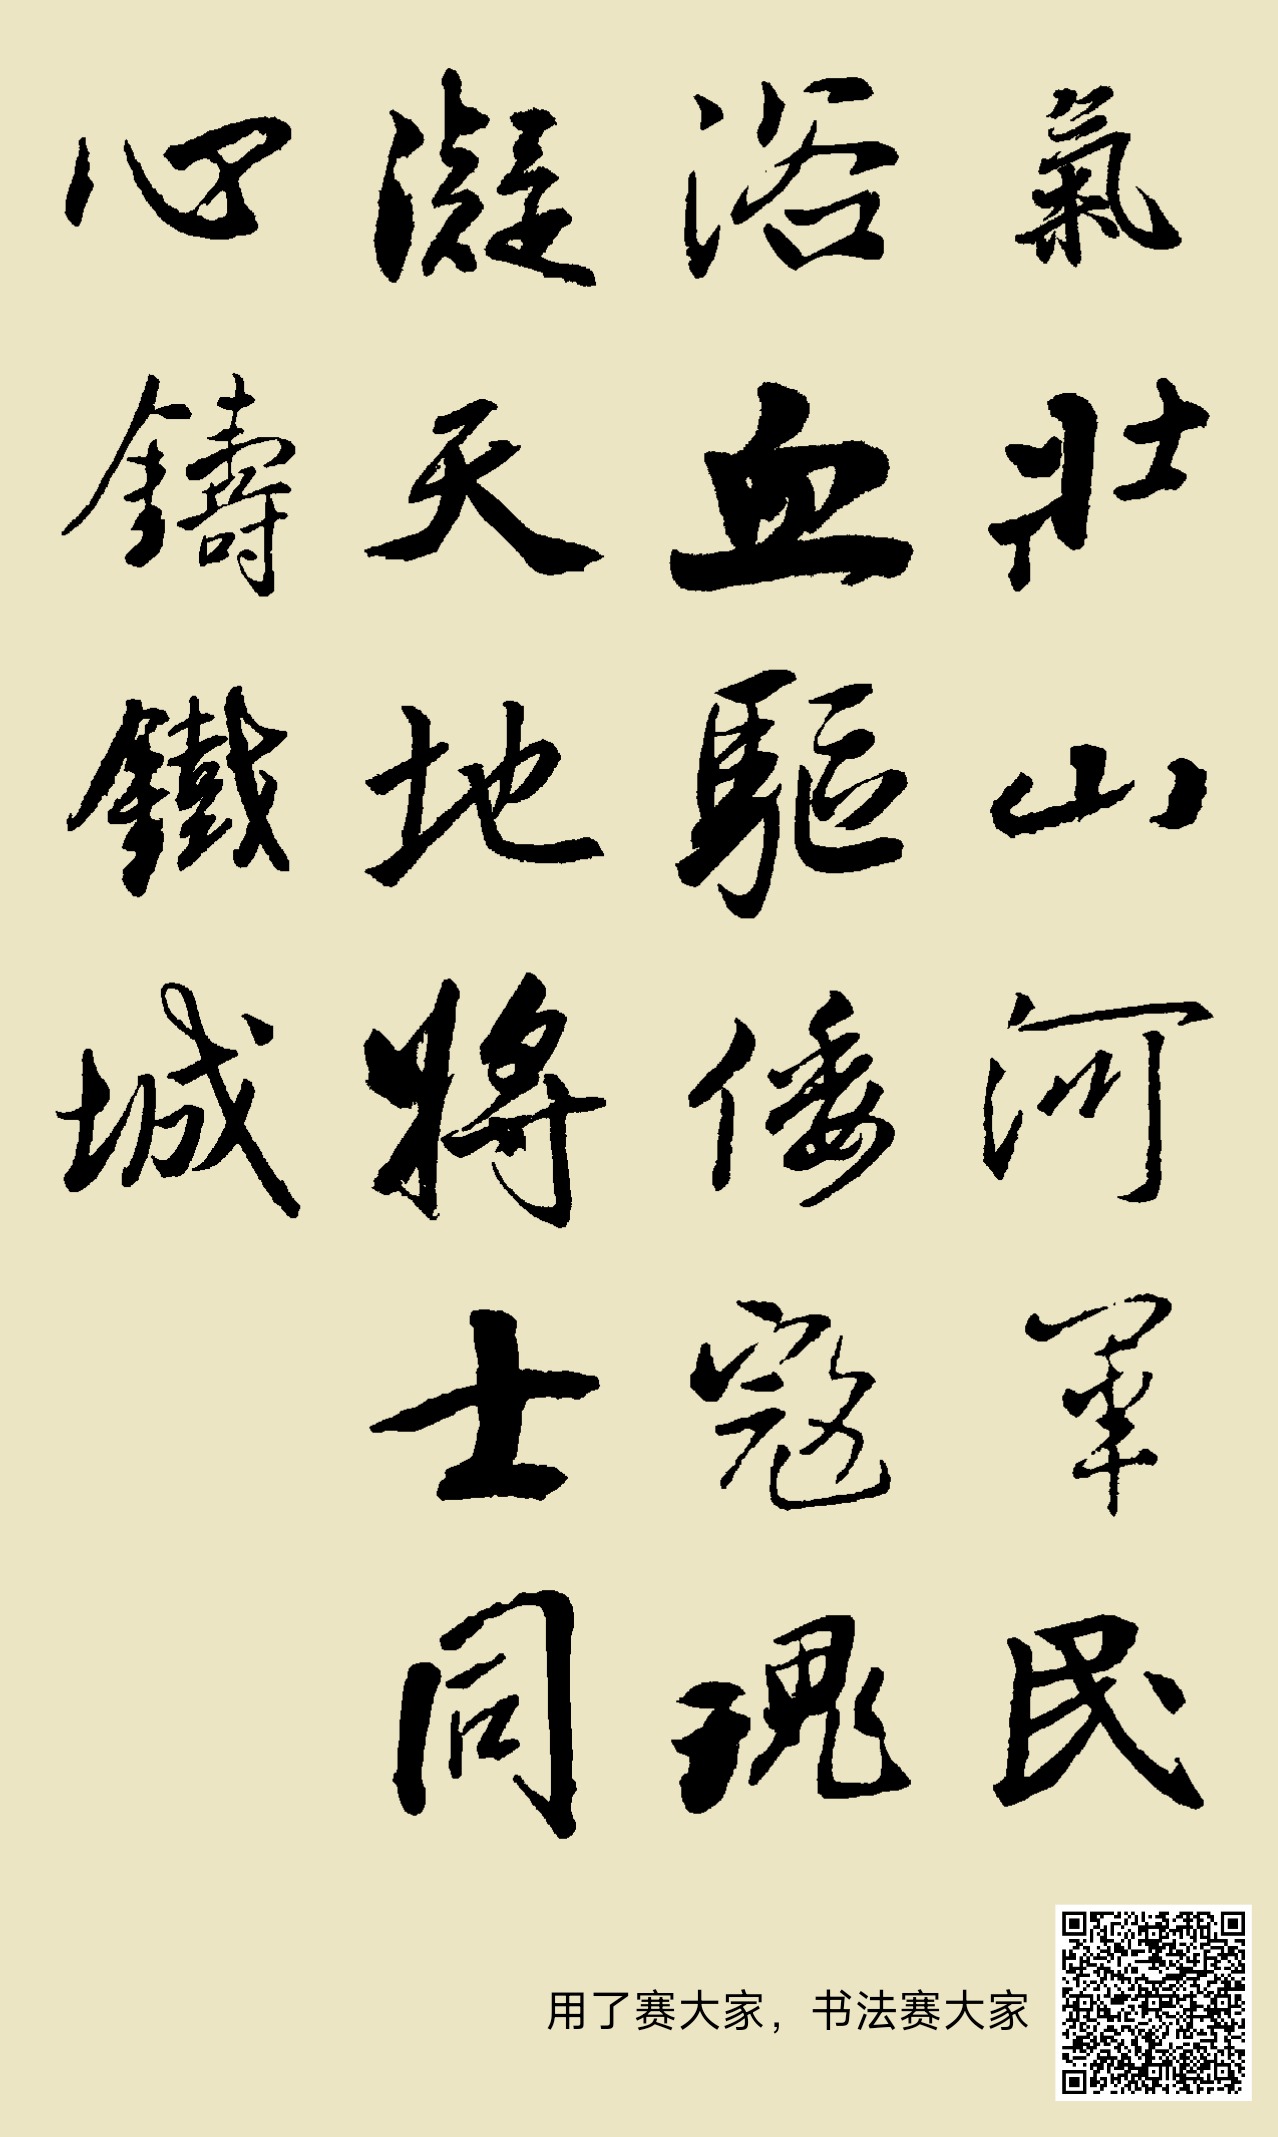 氣壯山河軍民
浴血驅倭寇瑰
凝天地將士同
心鑄鐵城
用了赛大家，书法赛大家